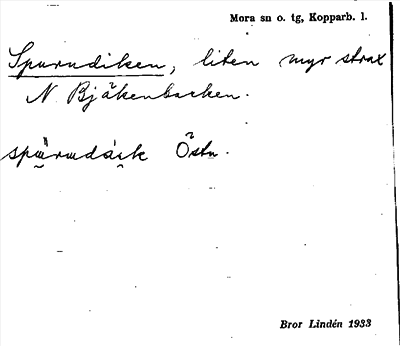 Mora sn o. tg, Kopparb. l.
Spurudiken, liten myr strax
N. Bjäkenbacken.
Östn.
Bror Lindén 1933